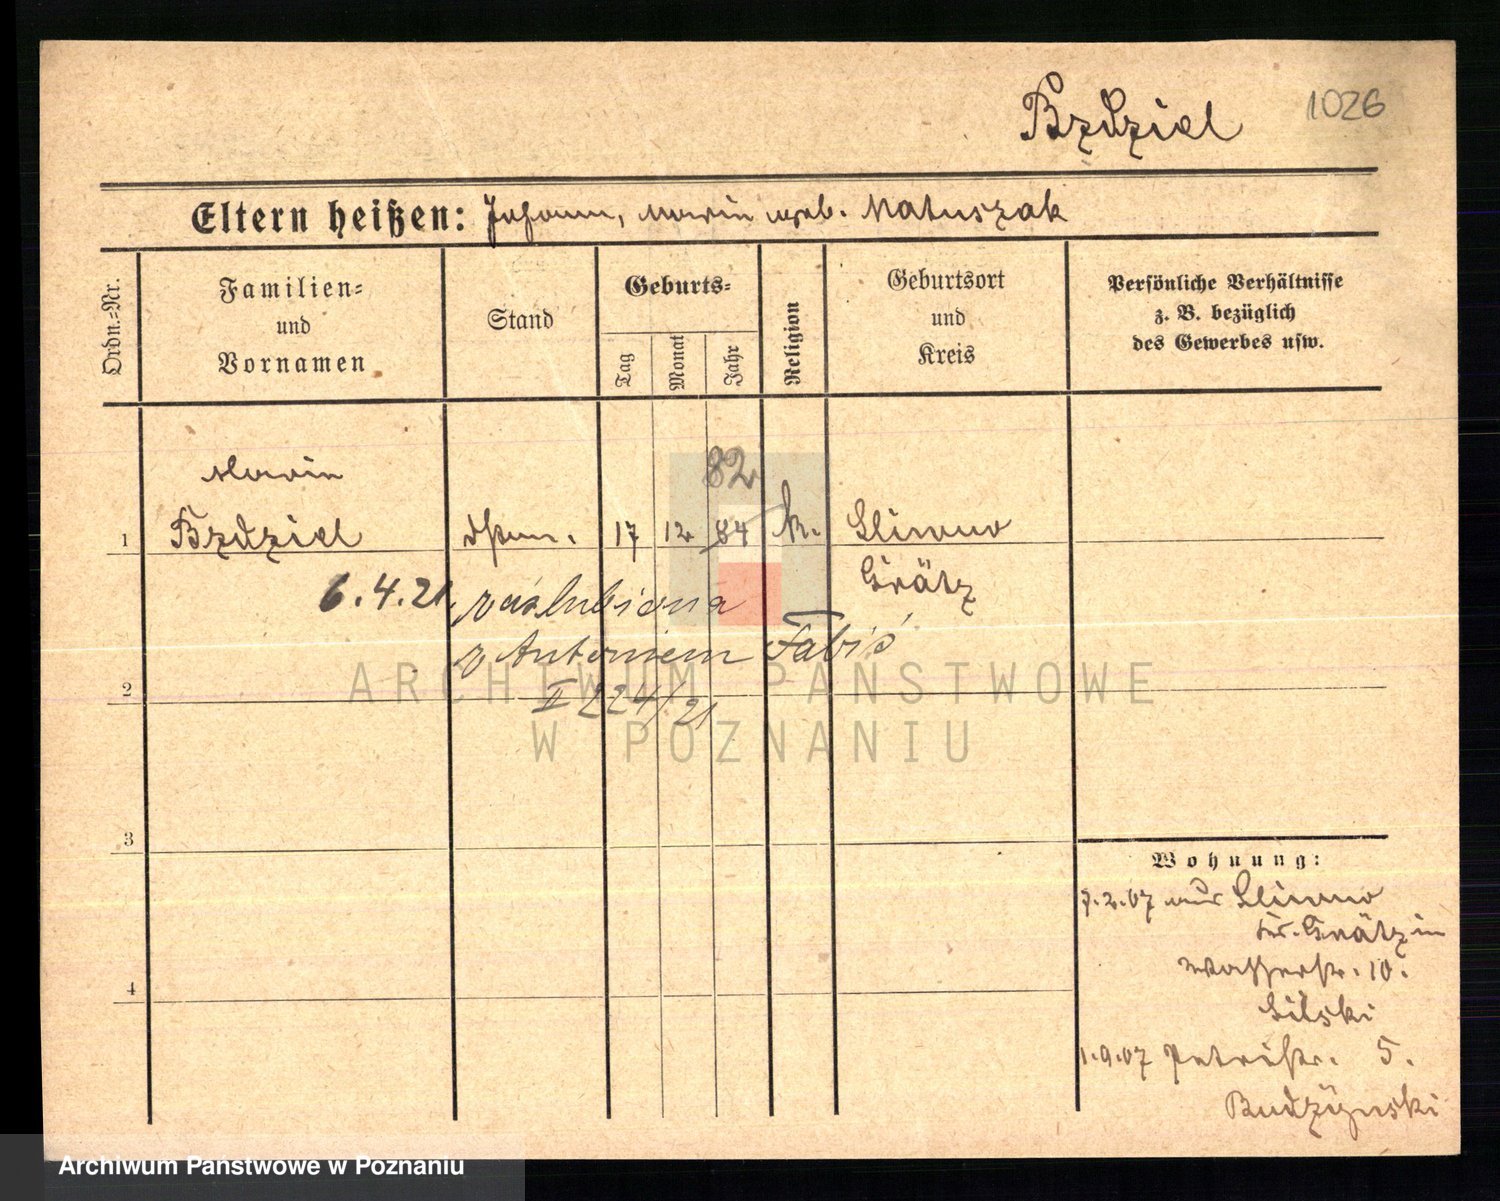 Bzdziel
1026
Eltern heißen: Johann, Marie geb. Matuszak
Ordn.-Nr.
Familien-
und
Vornamen
Stand
Geburts-
Tag
Monat
Jahr
Religion
Geburtsort
und
Kreis
Persönliche Verhältnisse
z. B. bezüglich
des Gewerbes usw.
82
Marie
1 Bzdziel 17 12 84 k.
Grätz
6.4.21. zaślubiona
z Antoniem Fabiś
2
II 224/21
3
4
Wohnung:
7.2.07 aus
Kr. Grätz in
Wasserstr. 10.
1.9.07 Petristr. 5.
Budzynski
ARCHIWUM PAŃSTWOWE
W POZNANIU
Archiwum Państwowe w Poznaniu